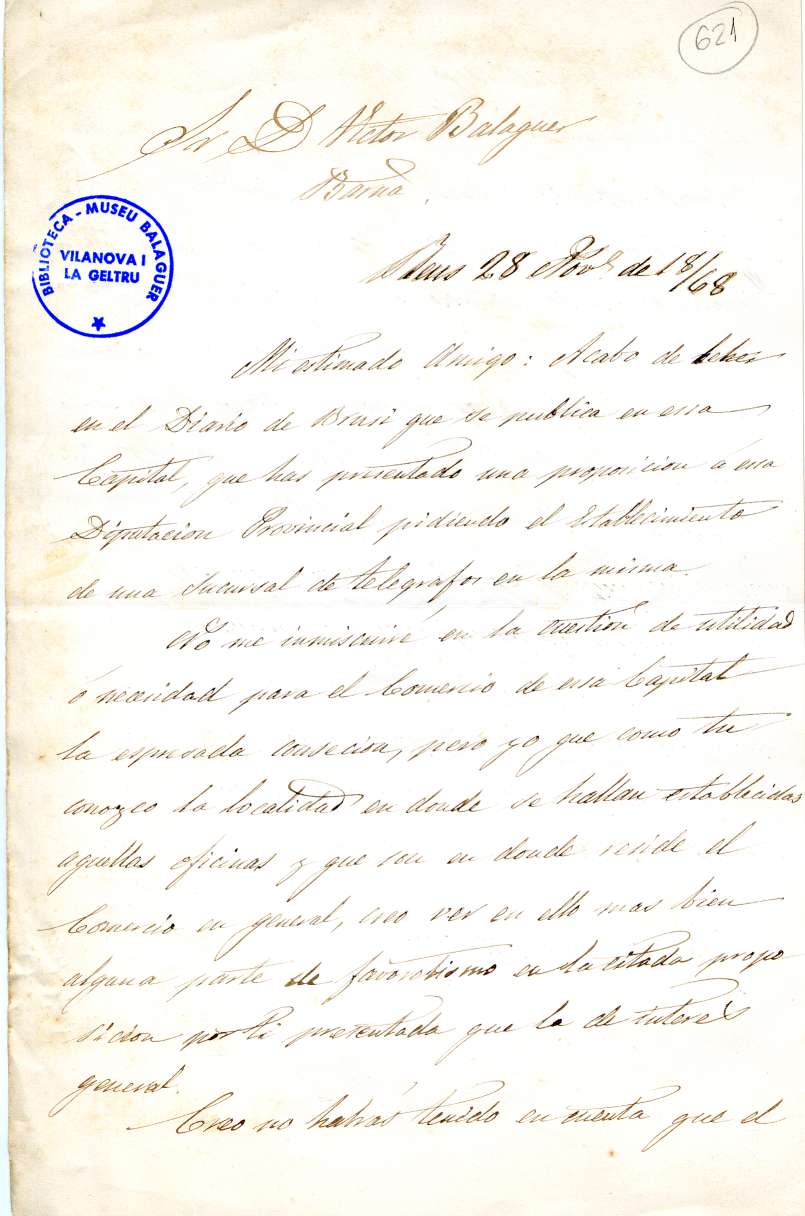 621
Sr D Victor Balaguer
Barna.
BIBLIOTECA - MUSEU BALAGUER
VILANOVA I
LA GELTRU
Reus 28 Nov.e de 18/68
Mi estimado Amigo: Acabo de leher
en el Diario de Brusi que se publica en essa
Capital, que has presentado una proposicion á essa
Diputacion Provincial pidiendo el Establecimiento
de una Sucursal de telegrafos en la misma.
No me inmiscuiré en la cuestion de utilidad
ó necesidad para el Comercio de essa Capital
la espresada consecion, pero yo que como tu
conozco la localidad en donde se hallan establecidas
aquellas oficinas y que son en donde reside el
Comercio en general, creo ver en ello mas bien
alguna parte de favorotismo en la citada propo
sicion por ti presentada que la de interés
general.
Creo no habrás tenido en cuenta que el